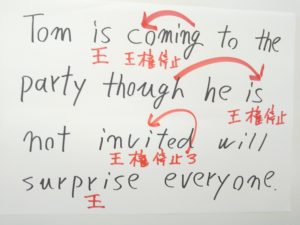 Tom is coming to the
王 王権停止
party though he is
王権停止
not invited will
王権停止3
surprise everyone.
王